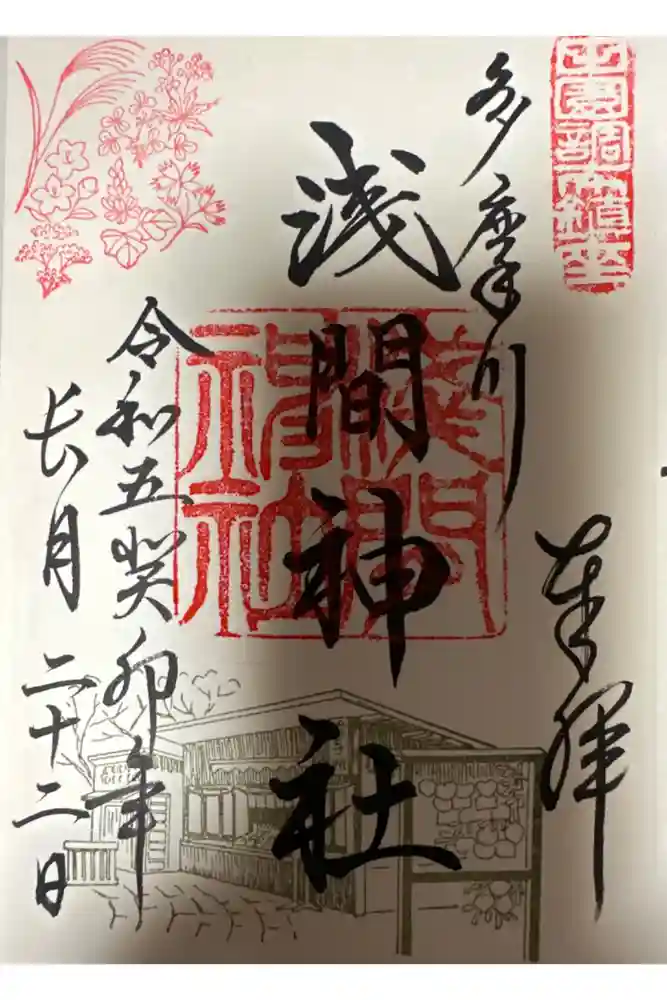 田園調布鎮坐
奉拝
多摩川
浅間神社
浅間神社
令和五癸卯年
長月二十二日